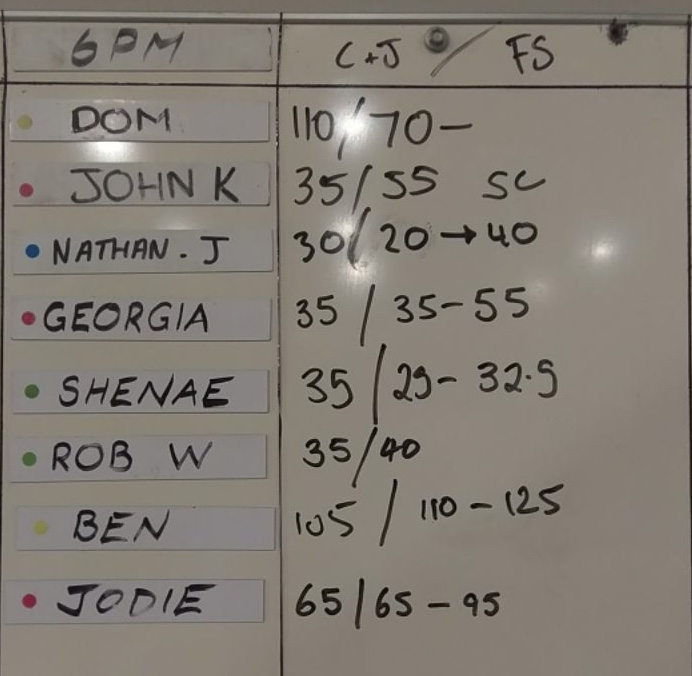 6PM C+J / FS
DOM 110/70-
JOHN K 35/55 SC
NATHAN.J 30/20→40
GEORGIA 35/35-55
SHENAE 35/29-32.5
ROB W 35/40
BEN 105/110-125
JODIE 65/65-95